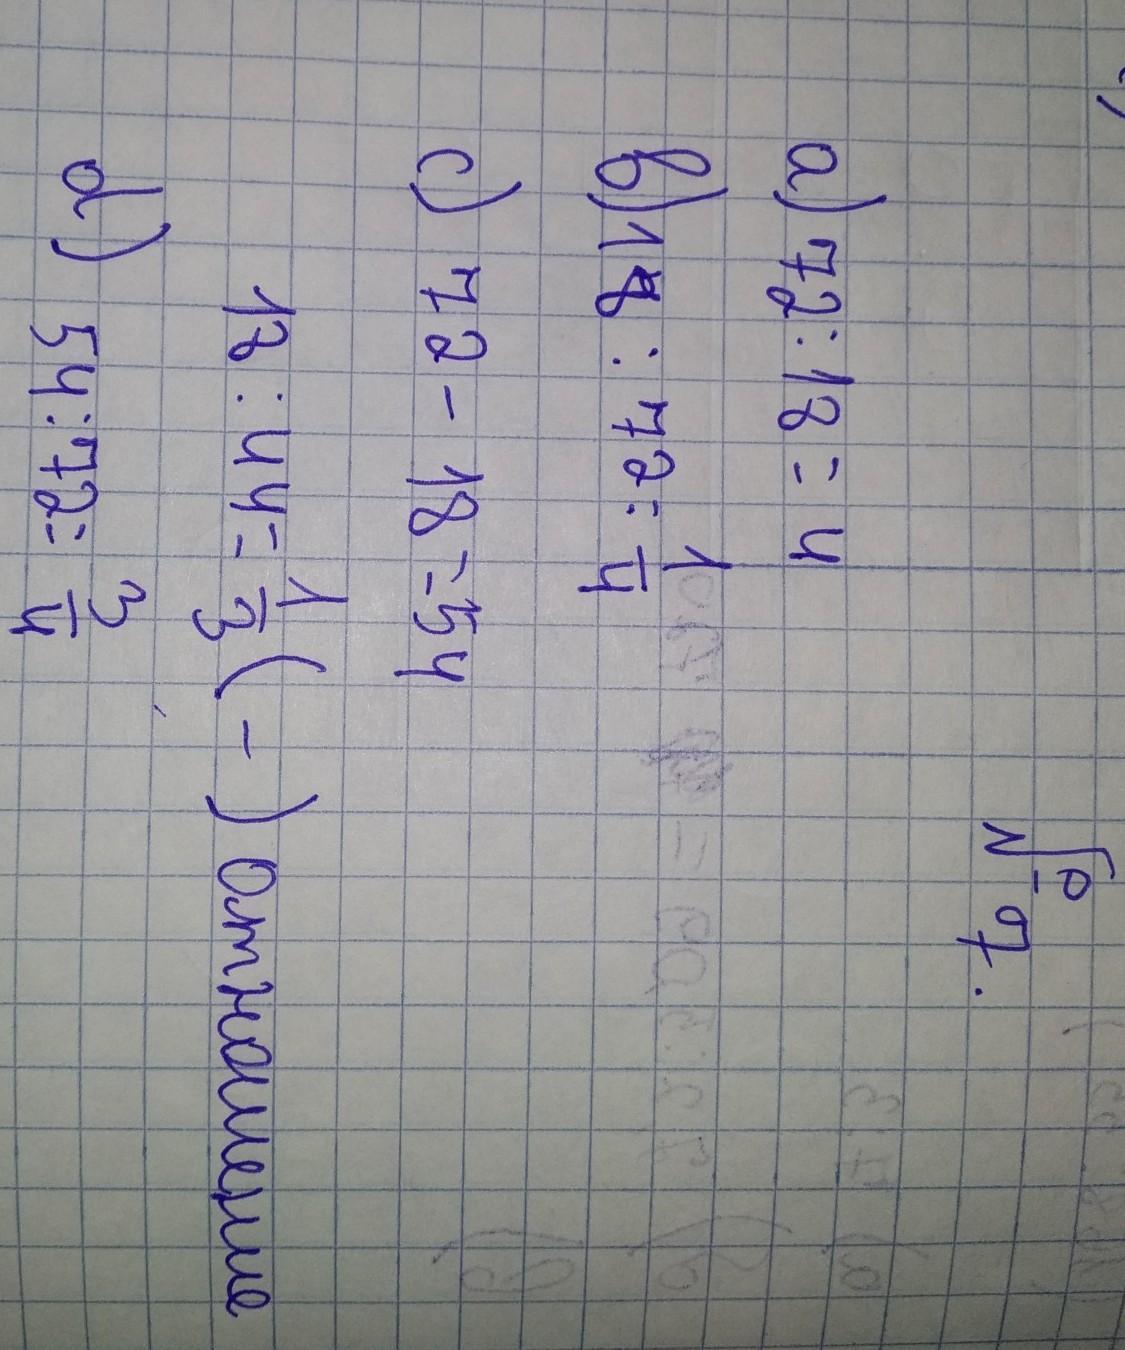 № 7.
a) 72 : 18 = 4
b) 18 : 72 = 1/4
c) 72 - 18 = 54
18 : 44 = 1/3 (-) отношение
d) 54 : 72 = 3/4